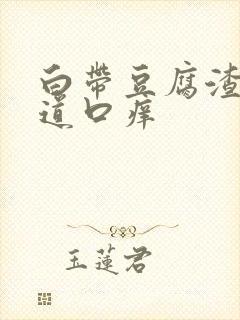 白帶豆腐渣
道口痒
玉蓮君